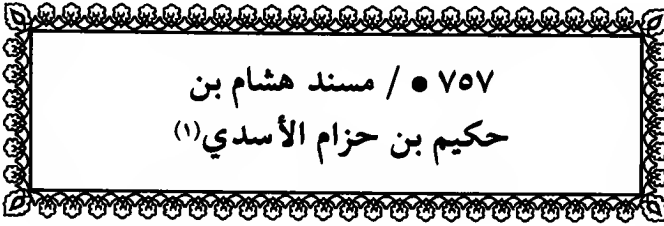 ٧٥٧ • / مسند هشام بن
حكيم بن حزام الأسدي(١)